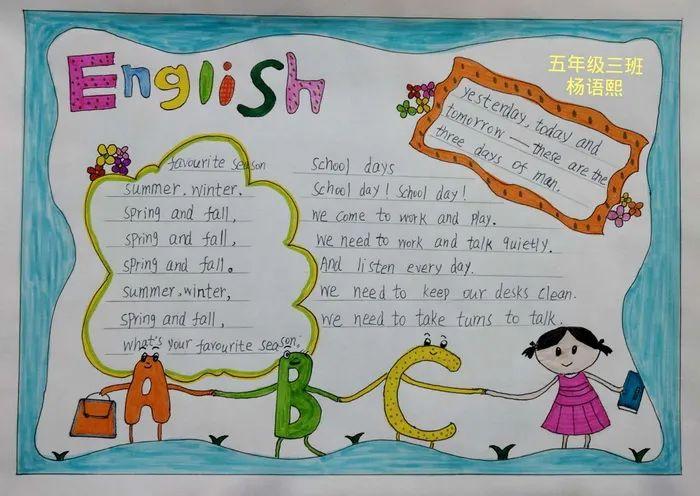 English
五年级三班
杨语熙
yesterday, today and
tomorrow — these are the
three days of man.
favourite season
summer, winter,
spring and fall,
spring and fall,
spring and fall。
summer, winter,
spring and fall,
what's your favourite season.
School days
School day! School day!
We come to work and play.
We need to work and talk quietly.
And listen every day.
We need to keep our desks clean.
We need to take turns to talk.
A B C